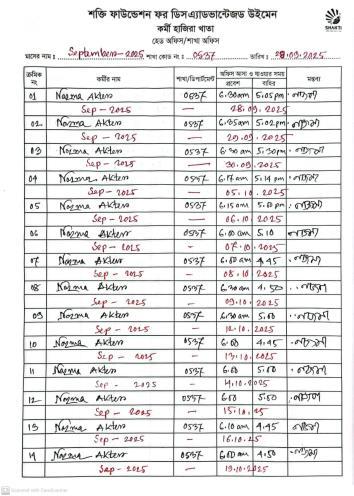 শক্তি ফাউন্ডেশন ফর ডিসএ্যাডভান্টেজড উইমেন
SHAKTI
কর্মী হাজিরা খাতা
হেড অফিস/শাখা অফিস
মাসের নাম : September-2025 শাখা কোড নং : 0537 তারিখ : 28.09.2025
ক্রমিক নং কর্মীর নাম শাখা/ডিপার্টমেন্ট অফিস আসা ও যাওয়ার সময় মন্তব্য
প্রবেশ বাহির
01 Nazma Akter 0537 6.30am 5.05pm নাজমা
Sep - 2025 — 28.09.2025
02 Nazma Akter 0537 6.35am 5.02pm নাজমা
Sep - 2025 — 29.09.2025
03 Nazma Akter 0537 6.30am 5.30pm নাজমা
Sep - 2025 — 30.09.2025
04 Nazma Akter 0537 6.17am 5.14pm নাজমা
Sep - 2025 — 05.10.2025
05 Nazma Akter 0537 6.15am নাজমা
Sep - 2025 — 06.10.2025
06 Nazma Akter 0537 6.00am 5.10 নাজমা
Sep - 2025 — 07.10.2025
07 Nazma Akter 0537 6.00am 4.45 নাজমা
Sep - 2025 — 08.10.2025
08 Nazma Akter 0537 6.30am 4.50 নাজমা
Sep - 2025 — 09.10.2025
09 Nazma Akter 0537 6.30am 5.00 নাজমা
Sep - 2025 — 12.10.2025
10 Nazma Akter 0537 6.00 4.45 নাজমা
Sep - 2025 — 13.10.2025
11 Nazma Akter 0537 6.00 5.00 নাজমা
Sep - 2025 14.10.2025
12 Nazma Akter 0537 6.00 5.00 নাজমা
Sep - 2025 — 15.10.25
13 Nazma Akter 0537 6.10am 4.45 নাজমা
Sep - 2025 — 16.10.25
14 Nazma Akter 0537 6.00am 4.50 নাজমা
Sep - 2025 — 19.10.2025
Scanned with CamScanner